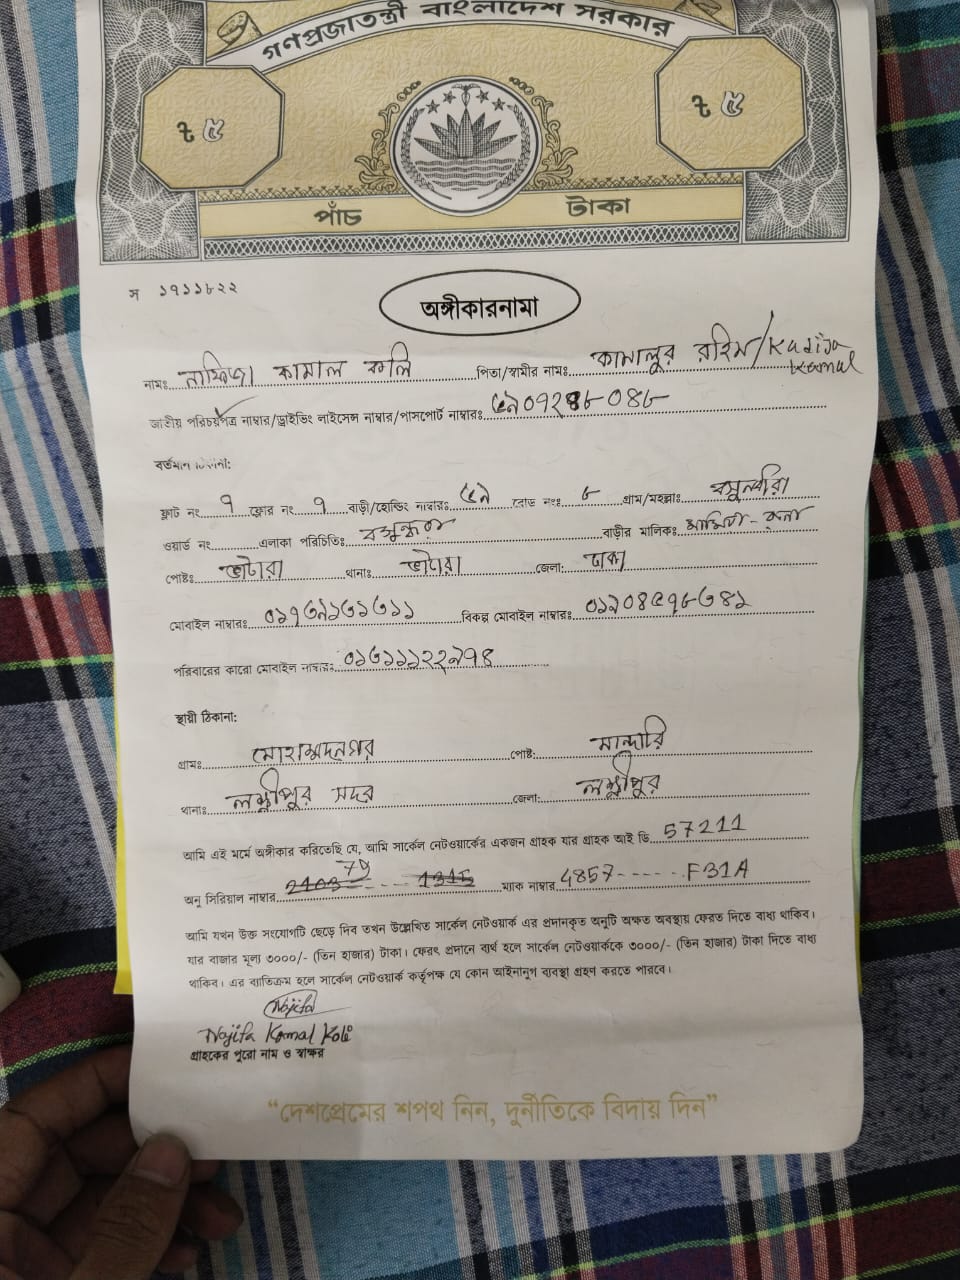 গণপ্রজাতন্ত্রী বাংলাদেশ সরকার
৳ ৫ ৳ ৫
পাঁচ টাকা
স ১৭১১৮২২
অঙ্গীকারনামা
নামঃ নাফিজা কামাল কলি পিতা/স্বামীর নামঃ কামালুর রহিম/Kadija Kamal
জাতীয় পরিচয়পত্র নাম্বার/ড্রাইভিং লাইসেন্স নাম্বার/পাসপোর্ট নাম্বারঃ
বর্তমান ঠিকানা:
ফ্লাট নং ৭ ফ্লোর নং ৭ বাড়ী/হোল্ডিং নাম্বারঃ ৫৯ রোড নংঃ ৮ গ্রাম/মহল্লাঃ বসুন্ধরা
ওয়ার্ড নং এলাকা পরিচিতিঃ বসুন্ধরা বাড়ীর মালিকঃ
পোষ্টঃ ভাটারা থানাঃ ভাটারা জেলা: ঢাকা
মোবাইল নাম্বারঃ বিকল্প মোবাইল নাম্বারঃ
পরিবারের কারো মোবাইল নাম্বারঃ
স্থায়ী ঠিকানা:
গ্রামঃ মোহাম্মদনগর পোষ্ট: মান্দারি
থানাঃ লক্ষ্মীপুর সদর জেলা: লক্ষ্মীপুর
আমি এই মর্মে অঙ্গীকার করিতেছি যে, আমি সার্কেল নেটওয়ার্কের একজন গ্রাহক যার গ্রাহক আই ডি 57211
অনু সিরিয়াল নাম্বার 79 ম্যাক নাম্বার 4857------F31A
আমি যখন উক্ত সংযোগটি ছেড়ে দিব তখন উল্লেখিত সার্কেল নেটওয়ার্ক এর প্রদানকৃত অনুটি অক্ষত অবস্থায় ফেরত দিতে বাধ্য থাকিব।
যার বাজার মূল্য ৩০০০/- (তিন হাজার) টাকা। ফেরৎ প্রদানে ব্যর্থ হলে সার্কেল নেটওয়ার্ককে ৩০০০/- (তিন হাজার) টাকা দিতে বাধ্য
থাকিব। এর ব্যতিক্রম হলে সার্কেল নেটওয়ার্ক কর্তৃপক্ষ যে কোন আইনানুগ ব্যবস্থা গ্রহণ করতে পারবে।
Najifa
Najifa Kamal Koli
গ্রাহকের পুরো নাম ও স্বাক্ষর
“দেশপ্রেমের শপথ নিন, দুর্নীতিকে বিদায় দিন”